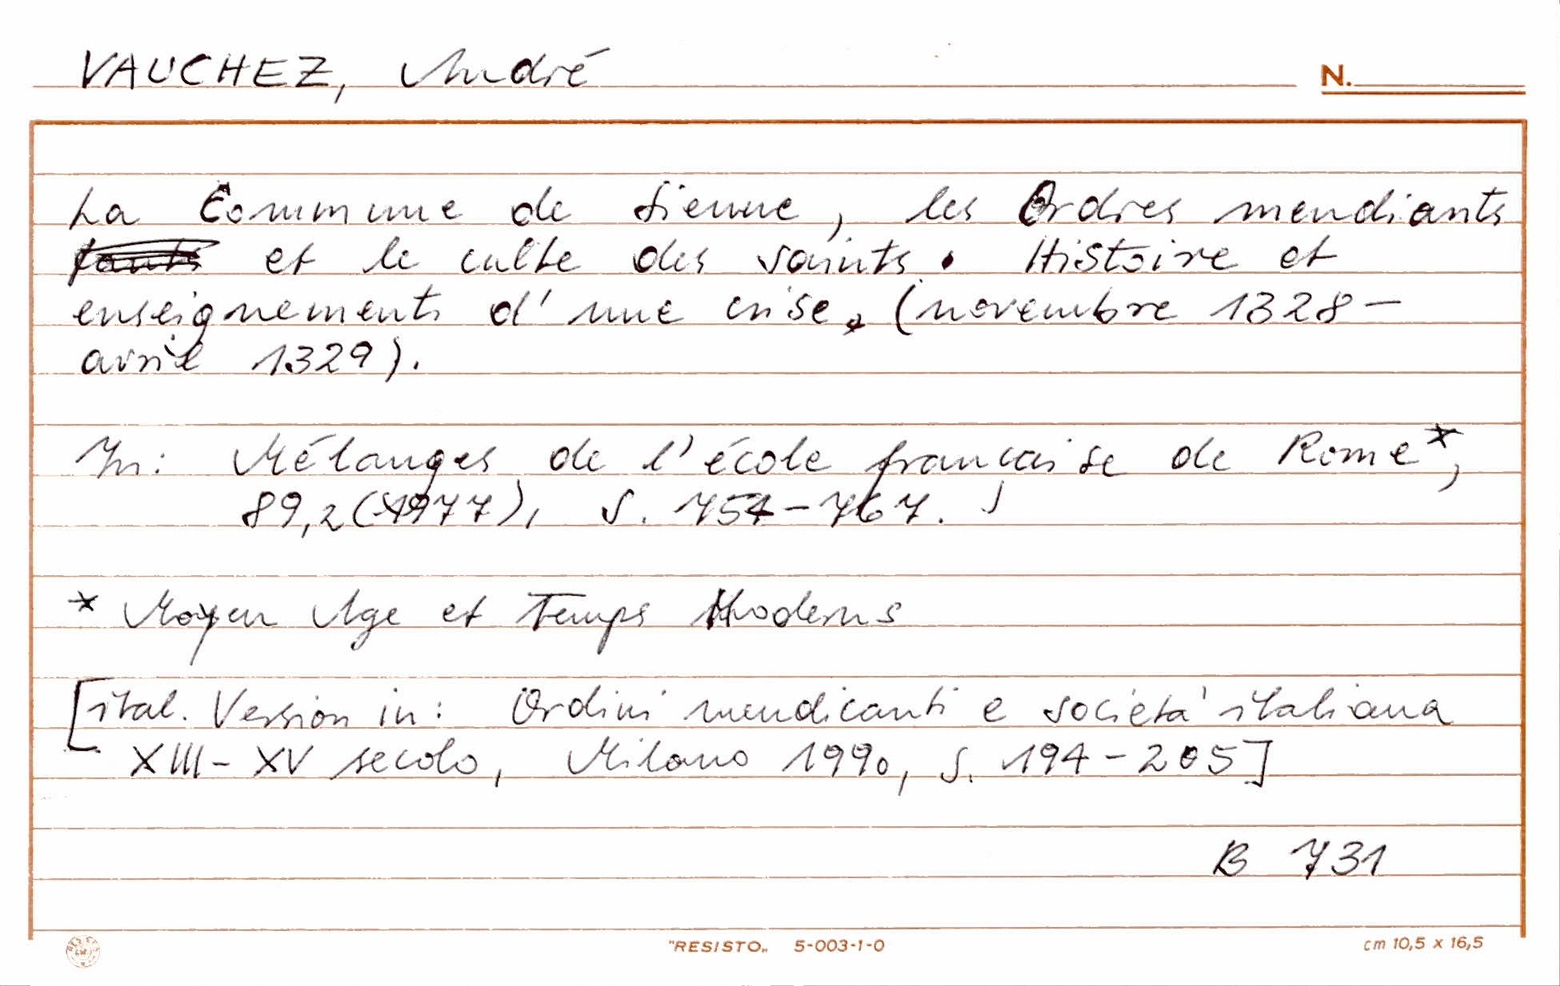 VAUCHEZ, André
N.
La Commune de Sienne, les Ordres mendiants
et le culte des saints. Histoire et
enseignements d'une crise. (novembre 1328-
avril 1329).
In: Mélanges de l'école française de Rome*,
89,2 (1977), S. 757-767.
* Moyen Age et Temps Moderns
[ital. Version in: Ordini mendicanti e società italiana
XIII-XV secolo, Milano 1990, S. 194-205]
B 731
"RESISTO„ 5-003-1-0
cm 10,5 x 16,5